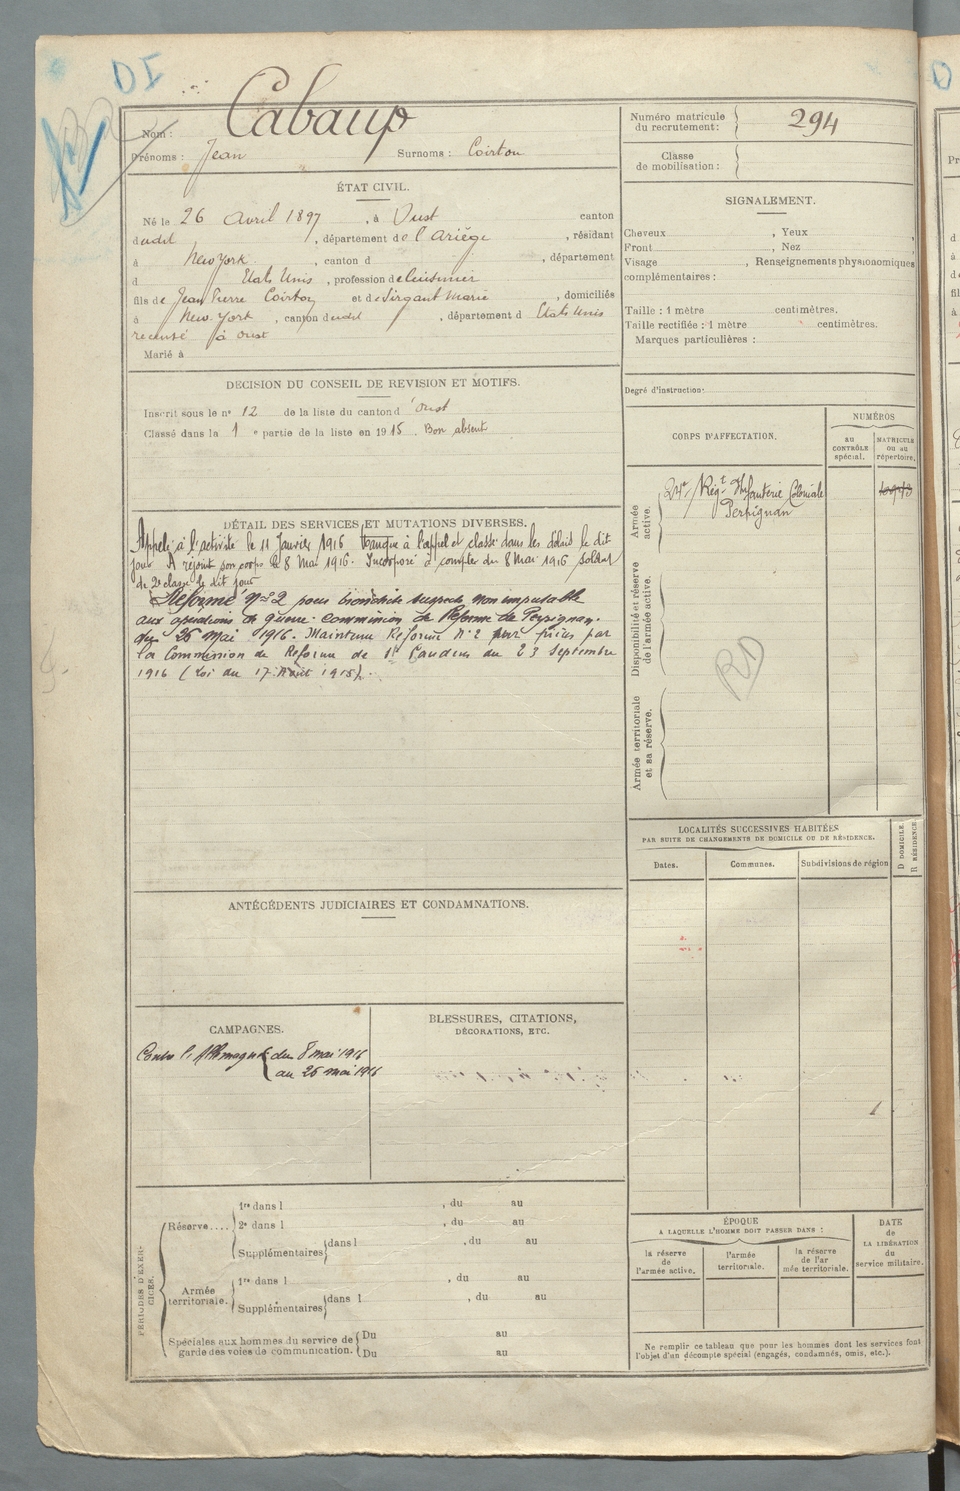 DI
Nom : Cabaup
Prénoms : Jean Surnoms : Coirtou
Numéro matricule du recrutement : 294
Classe de mobilisation :
ÉTAT CIVIL.
Né le 26 Avril 1897, à Oust canton
dudit, département de l'Ariège, résidant
à New York, canton d , département
d Etats Unis, profession de Cuisinier
fils de Jean Pierre Coirtou et de Sirgant Marie, domiciliés
à New-York, canton dudit, département d Etats Unis
recensé à Oust
Marié à
SIGNALEMENT.
Cheveux , Yeux ,
Front , Nez
Visage , Renseignements physionomiques
complémentaires :
Taille : 1 mètre centimètres.
Taille rectifiée : 1 mètre centimètres.
Marques particulières :
Degré d'instruction :
DECISION DU CONSEIL DE REVISION ET MOTIFS.
Inscrit sous le n° 12 de la liste du canton d'Oust
Classé dans la 1e partie de la liste en 1915. Bon absent
CORPS D'AFFECTATION.
NUMÉROS
au CONTRÔLE spécial.
MATRICULE ou au répertoire.
Armée active.
24e Régt Infanterie Coloniale
Perpignan
Disponibilité et réserve de l'armée active.
RD
Armée territoriale et sa réserve.
DÉTAIL DES SERVICES ET MUTATIONS DIVERSES.
Appelé à l'activité le 11 Janvier 1916 Manque à l'appel et classé dans les délais le dit
jour A rejoint son corps le 8 Mai 1916. Incorporé à compter du 8 Mai 1916 soldat
de 2e classe le dit jour
Réformé n° 2 pour bronchite suspecte non imputable
aux opérations de guerre. Commission de Réforme de Perpignan
du 26 mai 1916. Maintenu Réformé N° 2 par
la Commission de Réforme de St Gaudens du 23 Septembre
1916 (Loi du 17 Août 1915).
LOCALITÉS SUCCESSIVES HABITÉES
PAR SUITE DE CHANGEMENTS DE DOMICILE OU DE RÉSIDENCE.
Dates. Communes. Subdivisions de région
D DOMICILE. R RÉSIDENCE.
ANTÉCÉDENTS JUDICIAIRES ET CONDAMNATIONS.
CAMPAGNES.
Contre l'Allemagne du 8 mai 1916
au 26 mai 1916
BLESSURES, CITATIONS,
DÉCORATIONS, ETC.
PÉRIODES D'EXERCICES.
Réserve....
1re dans l , du au
2e dans l , du au
Supplémentaires dans l , du au
au
Armée territoriale.
1re dans l , du au
Supplémentaires dans l , du au
Spéciales aux hommes du service de garde des voies de communication.
Du au
Du au
ÉPOQUE
A LAQUELLE L'HOMME DOIT PASSER DANS :
la réserve de l'armée active.
l'armée territoriale.
la réserve de l'ar mée territoriale.
DATE de LA LIBÉRATION du service militaire.
Ne remplir ce tableau que pour les hommes dont les services font
l'objet d'un décompte spécial (engagés, condamnés, omis, etc.).